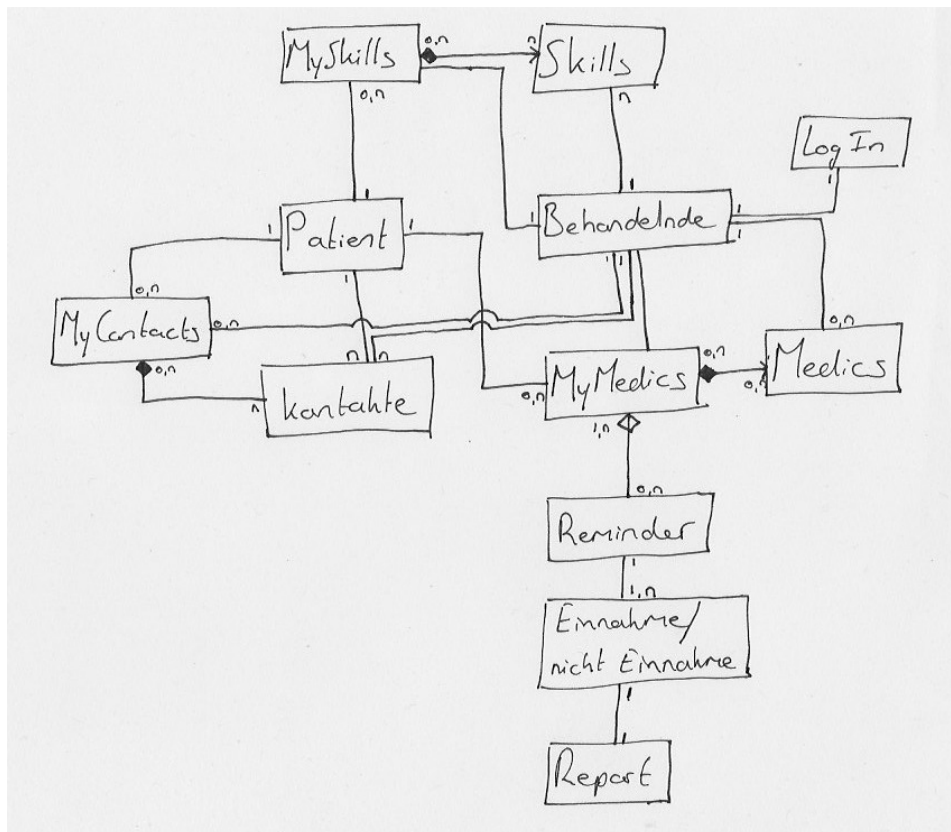 MySkills
0,n
n
Skills
0,n
n
Log In
1
1
1
Patient
1
1
1
1
Behandelnde
1
1
1
1
1
0,n
MyContacts
0,n
0,n
n
n
n
Kontakte
0,n
MyMedics
0,n
0,n
0,n
Medics
1,n
0,n
Reminder
1
1,n
Einnahme/
nicht Einnahme
1
1
Report